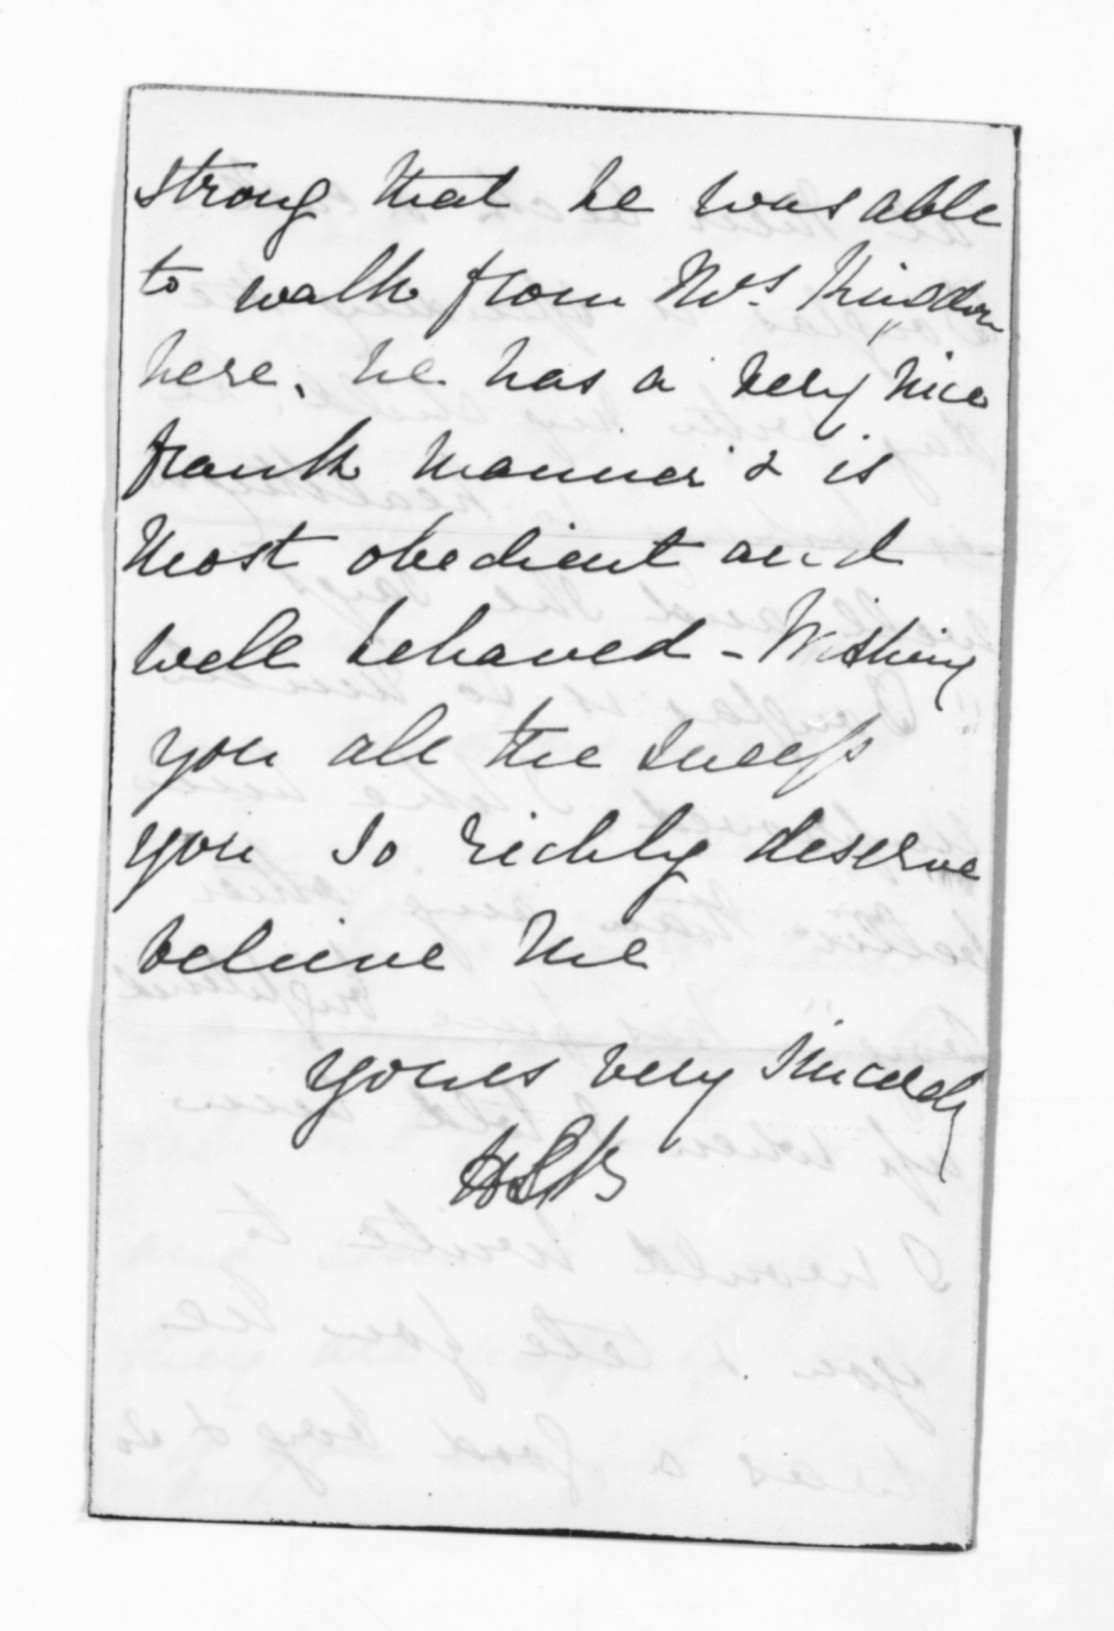 strong that he was able
to walk from Mrs
here, he has a very nice
frank manner & is
most obedient and
well behaved - Wishing
you all the success
you so richly deserve
believe me
yours very sincerely